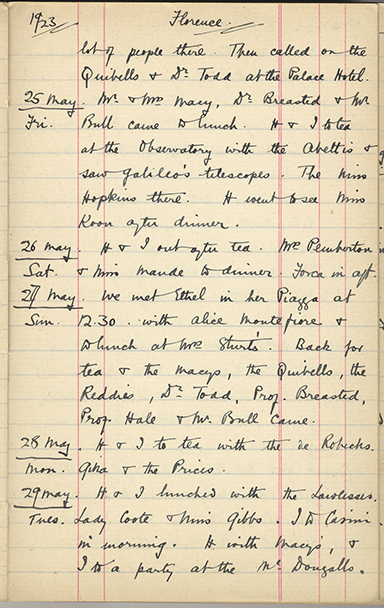 1923 Florence.
lot of people there. Then called on the
Quibells & Dr. Todd at the Palace Hotel.
25 May. Mr. & Mrs Macy, Dr. Breasted & Mr
Fri. Bull came to lunch. H & I to tea
at the Observatory with the Abettis &
saw Galileo's telescopes. The Miss
Hopkins there. H went to see Miss
Koon after dinner.
26 May. H & I out after tea. Mrs Pemberton
Sat. & Miss Maude to dinner. in aft.
27 May. We met Ethel in her Piazza at
Sun. 12.30. with Alice Montefiore &
to lunch at Mrs Sturt's. Back for
tea & the Macys, the Quibells, the
Reddies, Dr. Todd, Prof. Breasted,
Prof. Hale & Mr. Bull came.
28 May. H & I to tea with the de Robecks.
Mon. & the Prices.
29 May. H & I lunched with the
Tues. Lady Coote & Miss Gibbs. I to
in morning. H with Macy's, &
I to a party at the McDougalls.